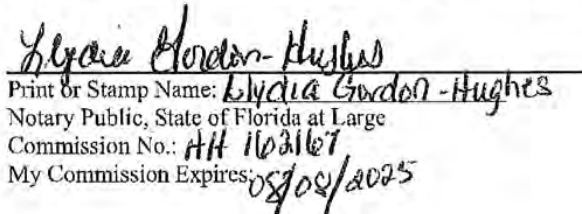 Lydia Gordon-Hughes
Print or Stamp Name: Lydia Gordon-Hughes
Notary Public, State of Florida at Large
Commission No.: HH 163167
My Commission Expires: 08/08/2025